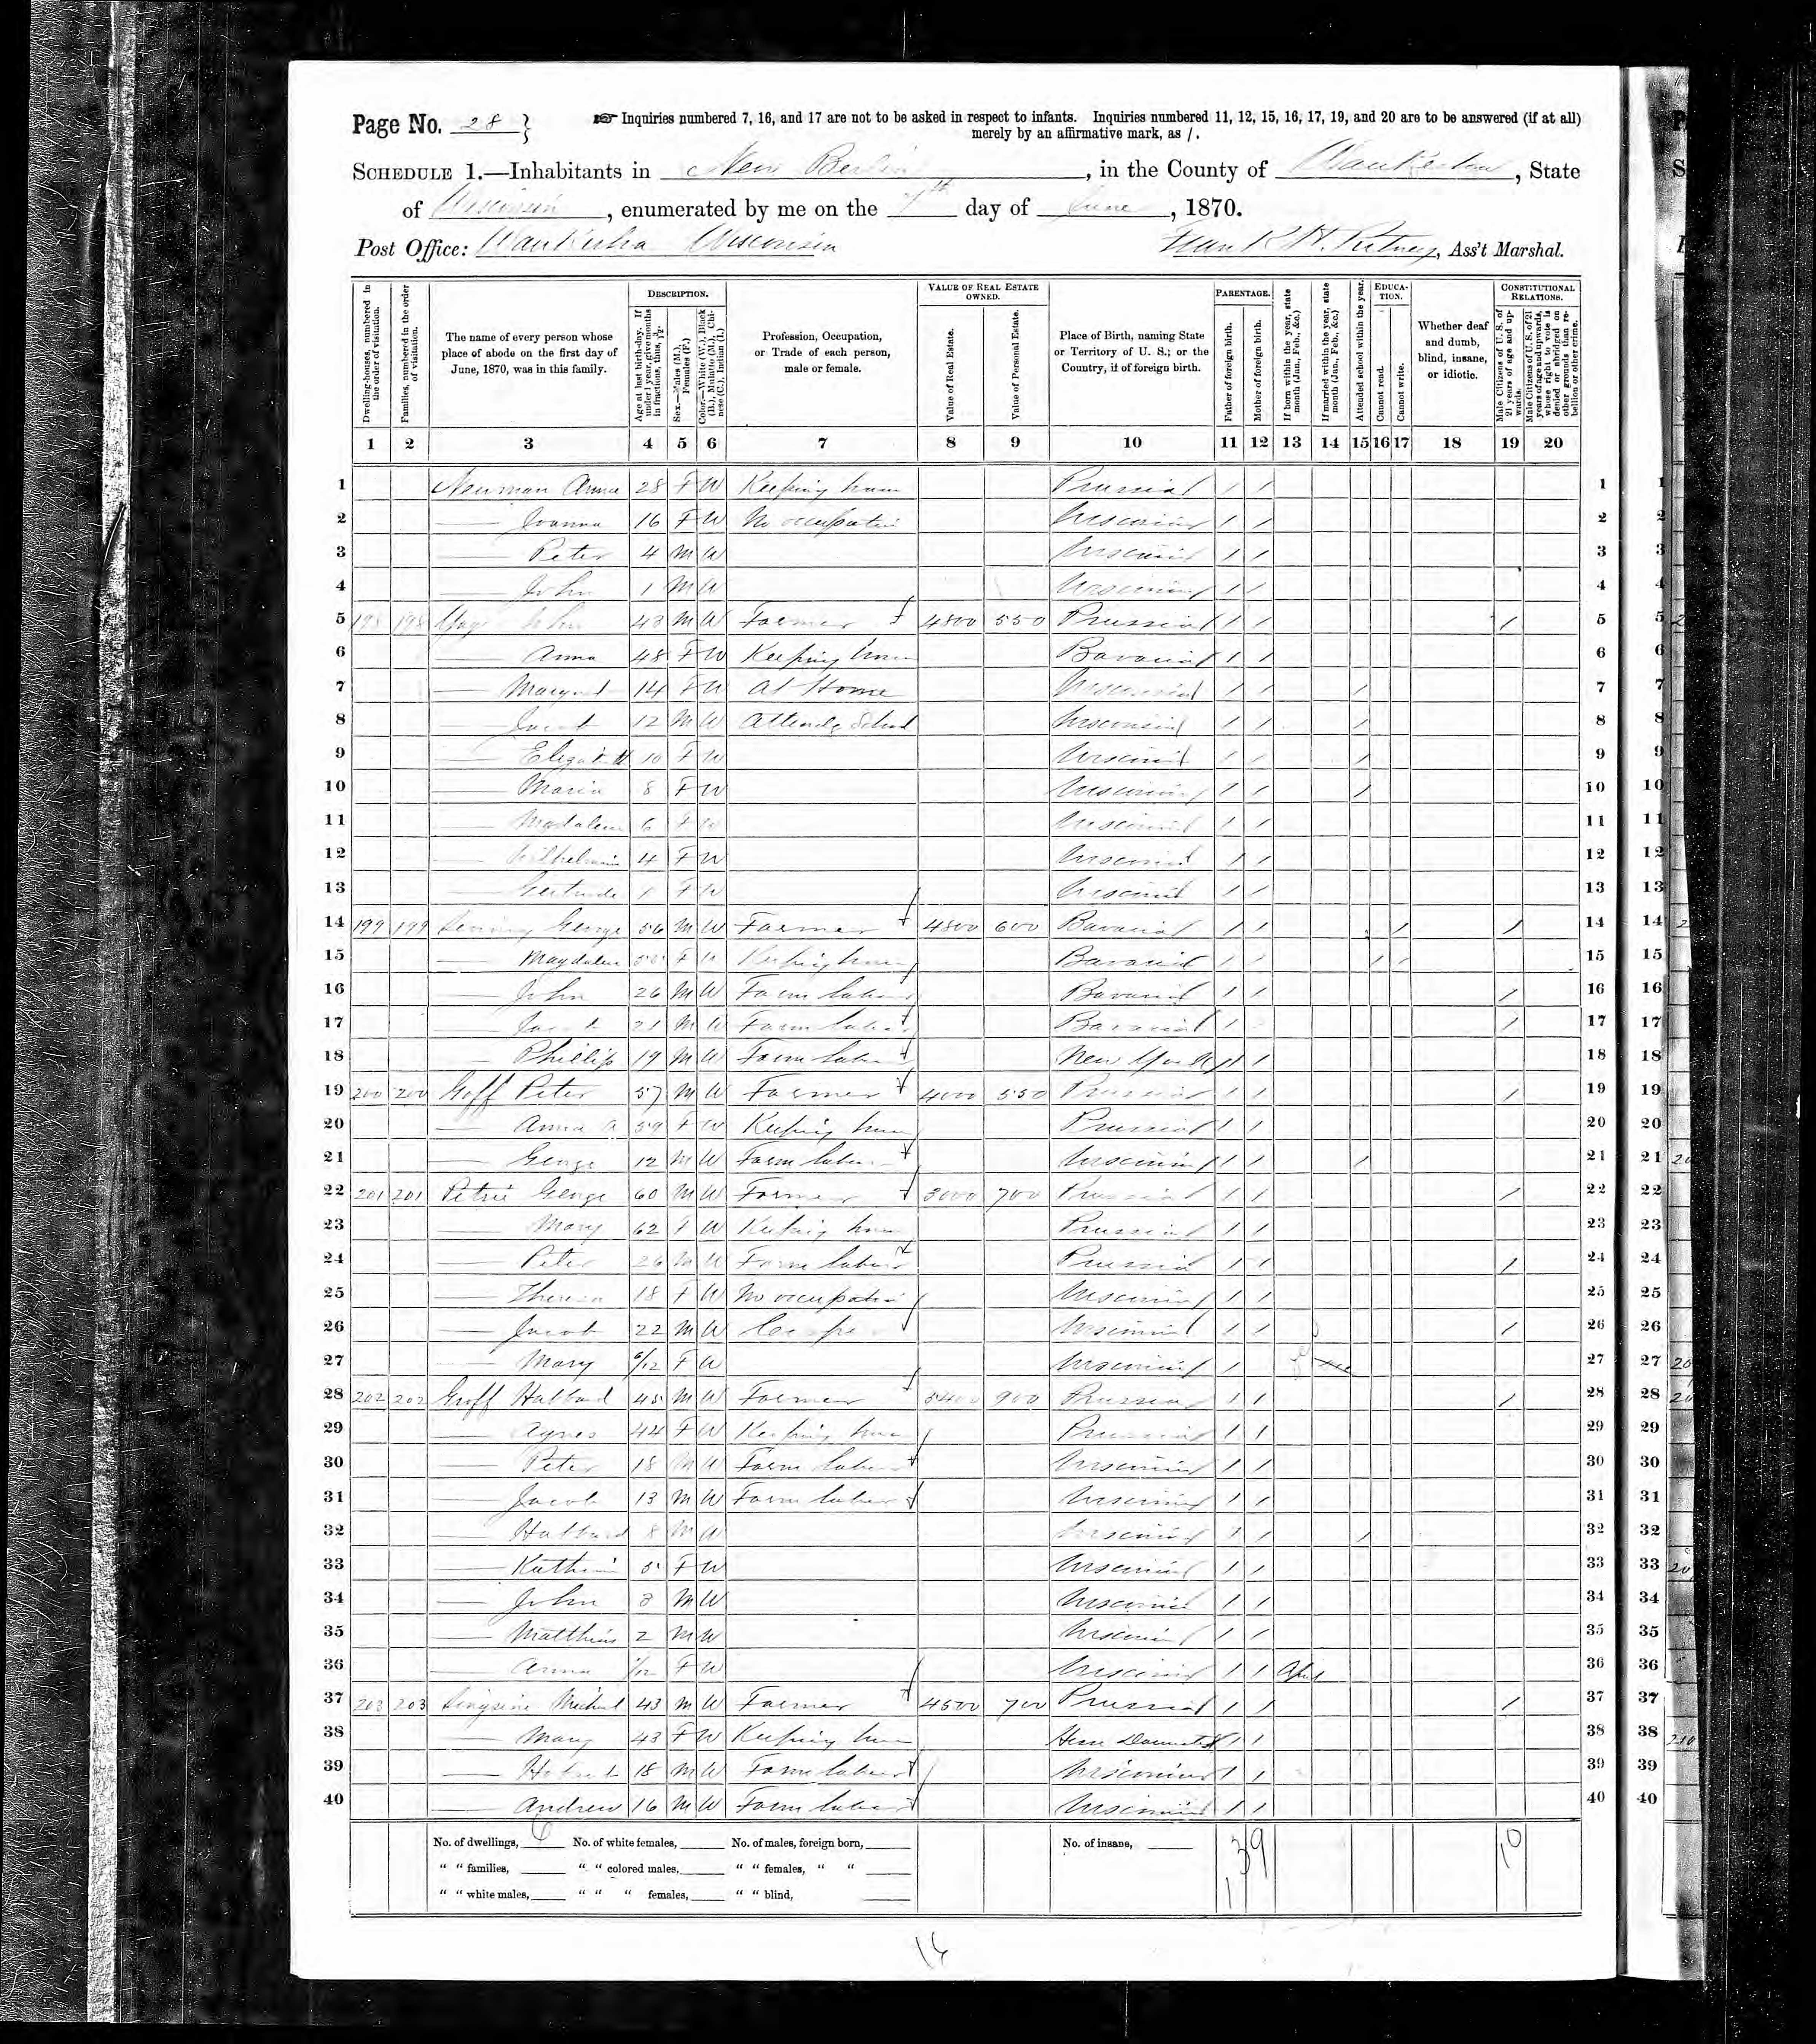 Page No. 28 }
☞ Inquiries numbered 7, 16, and 17 are not to be asked in respect to infants. Inquiries numbered 11, 12, 15, 16, 17, 19, and 20 are to be answered (if at all)
merely by an affirmative mark, as /.
SCHEDULE 1.—Inhabitants in New Berlin, in the County of Waukesha, State
of Wisconsin, enumerated by me on the 7th day of June, 1870.
Post Office: Waukesha Wisconsin Frank H. Putney, Ass't Marshal.
Dwelling-houses, numbered in the order of visitation.
Families, numbered in the order of visitation.
The name of every person whose place of abode on the first day of June, 1870, was in this family.
DESCRIPTION.
Age at last birth-day. If under 1 year, give months in fractions, thus, 3/12.
Sex.—Males (M.), Females (F.)
Color.—White (W.), Black (B.), Mulatto (M.), Chinese (C.), Indian (I.)
Profession, Occupation, or Trade of each person, male or female.
VALUE OF REAL ESTATE OWNED.
Value of Real Estate.
Value of Personal Estate.
Place of Birth, naming State or Territory of U. S.; or the Country, if of foreign birth.
PARENTAGE.
Father of foreign birth.
Mother of foreign birth.
If born within the year, state month (Jan., Feb., &c.)
If married within the year, state month (Jan., Feb., &c.)
Attended school within the year.
EDUCATION.
Cannot read.
Cannot write.
Whether deaf and dumb, blind, insane, or idiotic.
CONSTITUTIONAL RELATIONS.
Male Citizens of U. S. of 21 years of age and upwards.
Male Citizens of U. S. of 21 years of age and upwards, whose right to vote is denied or abridged on other grounds than rebellion or other crime.
1 2 3 4 5 6 7 8 9 10 11 12 13 14 15 16 17 18 19 20
1 Neuman Anna 28 F W Keeping house Prussia / / 1
2 — Joanna 16 F W No occupation Wisconsin / / 2
3 — Peter 4 M W Wisconsin / / 3
4 — John 1 M W Wisconsin / / 4
5 198 198 John 43 M W Farmer 4800 550 Prussia / / / 5
6 — Anna 48 F W Keeping house Bavaria / / 6
7 — Margret 14 F W At Home Wisconsin / / / 7
8 — Jacob 12 M W Attends School Wisconsin / / / 8
9 — Elizabeth 10 F W Wisconsin / / / 9
10 — Maria 8 F W Wisconsin / / / 10
11 — Madalene 6 F W Wisconsin / / 11
12 — Wilhelmina 4 F W Wisconsin / / 12
13 — Gertrude 1 F W Wisconsin / / 13
14 199 199 George 56 M W Farmer 4800 600 Bavaria / / / / 14
15 — Magdalen F W Keeping house Bavaria / / / / 15
16 — John 26 M W Farm laborer Bavaria / / / 16
17 — Jacob 21 M W Farm laborer Bavaria / / / 17
18 — Phillip 19 M W Farm laborer New York / / 18
19 200 200 Goff Peter 57 M W Farmer 4000 550 Prussia / / / 19
20 — Anna A 59 F W Keeping house Prussia / / 20
21 — George 12 M W Farm laborer Wisconsin / / / 21
22 201 201 Petrie George 60 M W Farmer 3000 700 Prussia / / / 22
23 — Mary 62 F W Keeping house Prussia / / 23
24 — Peter 26 M W Farm laborer Prussia / / / 24
25 — Theresa 18 F W No occupation Wisconsin / / 25
26 — Jacob 22 M W Cooper Wisconsin / / / 26
27 — Mary 6/12 F W Wisconsin / 27
28 202 202 Groff Hubbard 45 M W Farmer 5400 900 Prussia / / / 28
29 — Agnes 44 F W Keeping house Prussia / / 29
30 — Peter 18 M W Farm laborer Wisconsin / / 30
31 — Jacob 13 M W Farm laborer Wisconsin / / 31
32 — Hubbard 8 M W Wisconsin / / / 32
33 — Kathrin 5 F W Wisconsin / / 33
34 — John 3 M W Wisconsin / / 34
35 — Matthias 2 M W Wisconsin / / 35
36 — Anna 1/12 F W Wisconsin / / April 36
37 203 203 Michael 43 M W Farmer 4500 700 Prussia / / / 37
38 — Mary 43 F W Keeping house Hesse Darmstadt / / 38
39 — 18 M W Farm laborer Wisconsin / / 39
40 — Andrew 16 M W Farm laborer Wisconsin / / 40
No. of dwellings, 6 No. of white females, No. of males, foreign born, No. of insane, 39 10
" " families, " " colored males, " " females, " "
" " white males, " " " females, " " blind, 1
16